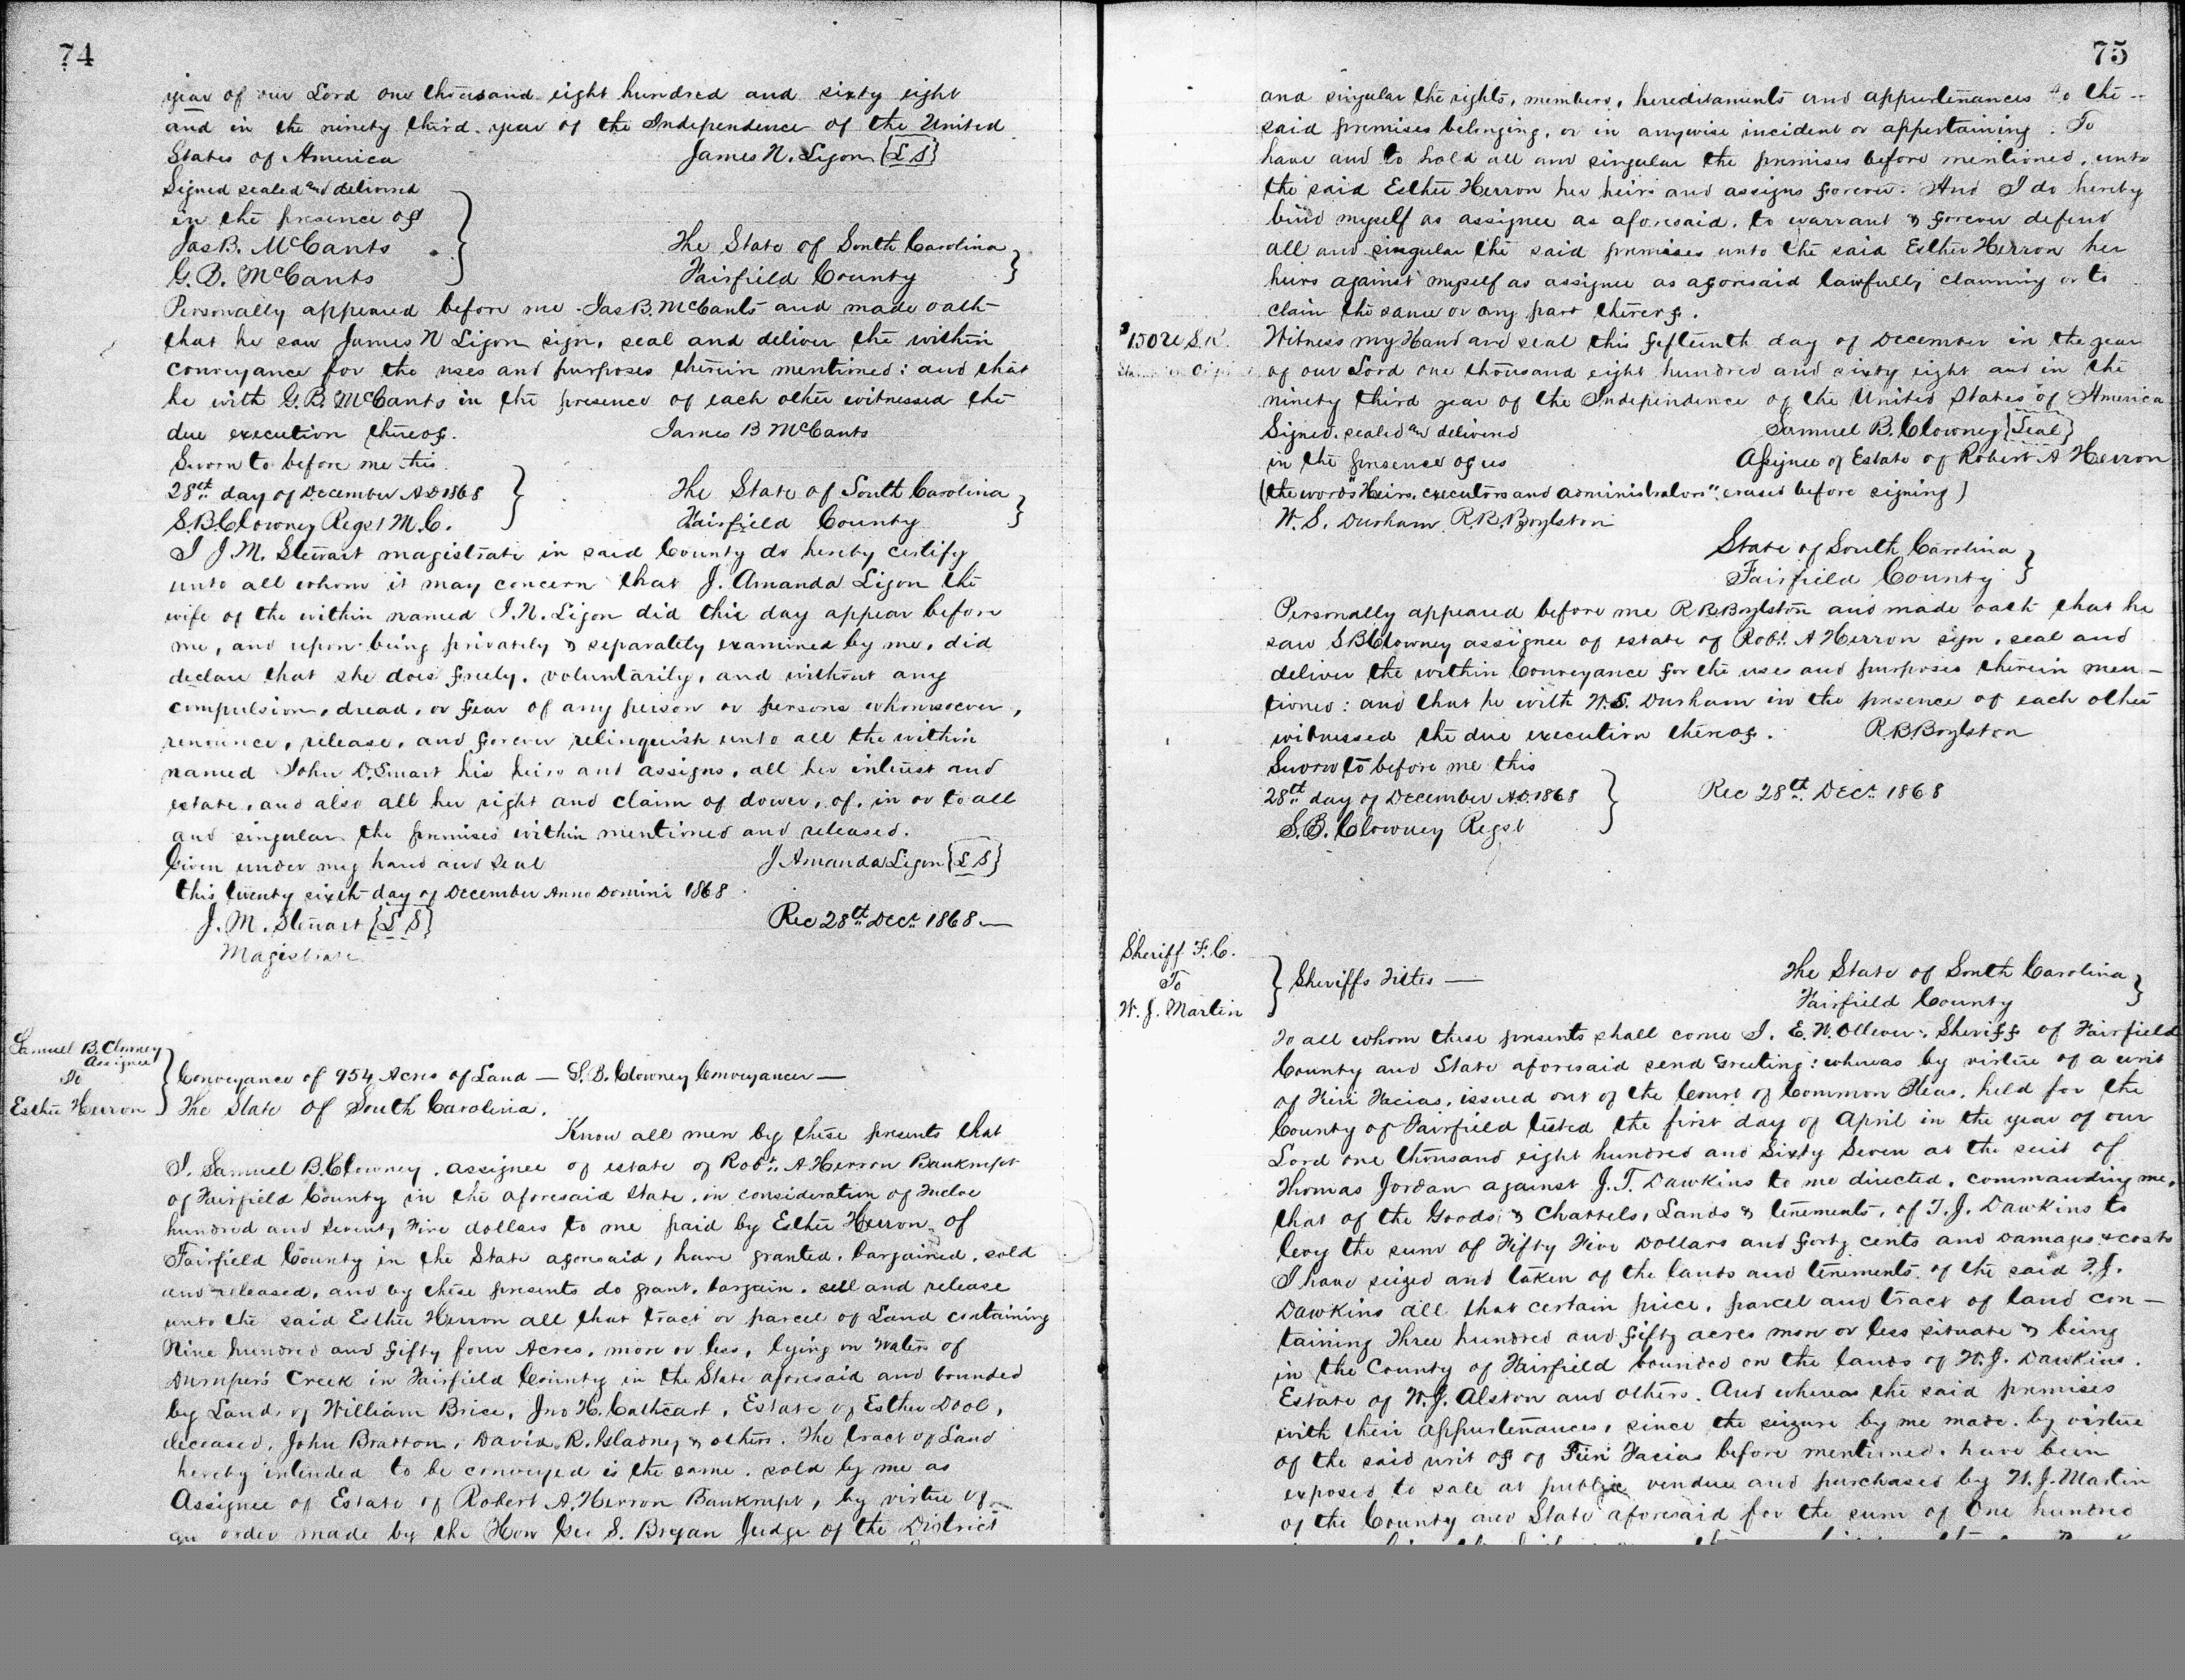 74
year of our Lord one thousand eight hundred and sixty eight
and in the ninety third year of the Independence of the United
States of America James N. Ligon {L S}
Signed sealed and delivered
in the presence of
Jas B. McCants
G. B. McCants
The State of South Carolina
Fairfield County
Personally appeared before me Jas B. McCants and made oath
that he saw James N Ligon sign, seal and deliver the within
conveyance for the uses and purposes therein mentioned: and that
he with G. B. McCants in the presence of each other witnessed the
due execution thereof. James B McCants
Sworn to before me this
28th day of December A D 1868
S. B. Clowney Regst M. C.
The State of South Carolina
Fairfield County
I J. M. Stewart magistrate in said County do hereby certify
unto all whom it may concern that J. Amanda Ligon the
wife of the within named J. N. Ligon did this day appear before
me, and upon being privately & separately examined by me, did
declare that she does freely, voluntarily, and without any
compulsion, dread, or fear of any person or persons whomsoever,
renounce, release, and forever relinquish unto all the within
named John D. Smart his heirs and assigns, all her interest and
estate, and also all her right and claim of dower, of, in or to all
and singular the premises within mentioned and released.
Given under my hand and seal J Amanda Ligon {L S}
this twenty sixth day of December Anno Domini 1868
J. M. Stewart {L S} Rec 28th Dec. 1868
Magistrate
Samuel B. Clowney
Assignee
To
Esther Herron
Conveyance of 954 Acres of Land — S. B. Clowney Conveyancer —
The State of South Carolina.
Know all men by these presents that
I, Samuel B. Clowney, assignee of estate of Robt. A Herron Bankrupt
of Fairfield County in the aforesaid State, in consideration of Twelve
hundred and Seventy Five dollars to me paid by Esther Herron of
Fairfield County in the State aforesaid, have granted, bargained, sold
and released, and by these presents do grant, bargain, sell and release
unto the said Esther Herron all that tract or parcel of Land containing
Nine hundred and fifty four Acres, more or less, lying on waters of
Dumpers Creek in Fairfield County in the State aforesaid and bounded
by Lands of William Brice, Jno H. Cathcart, Estate of Esther Dool,
deceased, John Bratton, David R. Gladney & others. The tract of Land
hereby intended to be conveyed is the same, sold by me as
Assignee of Estate of Robert A. Herron Bankrupt, by virtue of
an order made by the Hon Geo S. Bryan Judge of the District
75
and singular the rights, members, hereditaments and appurtenances to the
said premises belonging, or in anywise incident or appertaining. To
have and to hold all and singular the premises before mentioned, unto
the said Esther Herron her heirs and assigns forever. And I do hereby
bind myself as assignee as aforesaid, to warrant & forever defend
all and singular the said premises unto the said Esther Herron her
heirs against myself as assignee as aforesaid lawfully claiming or to
claim the same or any part thereof.
Witness my Hand and seal this fifteenth day of December in the year
of our Lord one thousand eight hundred and sixty eight and in the
ninety third year of the Independence of the United States of America
Signed, sealed and delivered Samuel B. Clowney {Seal}
in the presence of us Assignee of Estate of Robert A Herron
(the words "Heirs, executors and administrators", erased before signing)
W. S. Durham R. B. Boylston
State of South Carolina
Fairfield County
Personally appeared before me R B Boylston and made oath that he
saw S B Clowney assignee of estate of Robt. A Herron sign, seal and
deliver the within Conveyance for the uses and purposes therein men-
tioned: and that he with W. S. Durham in the presence of each other
witnessed the due execution thereof. R. B. Boylston
Sworn to before me this
28th day of December A.D. 1868 Rec 28th Dec. 1868
S. B. Clowney Regst
Sheriff F. C.
To
W. J. Martin
Sheriffs Titles —
The State of South Carolina
Fairfield County
To all whom these presents shall come I, E. W. Ollever, Sheriff of Fairfield
County and State aforesaid send Greeting: whereas by virtue of a writ
of Fieri Facias, issued out of the Court of Common Pleas, held for the
County of Fairfield tested the first day of April in the year of our
Lord one thousand eight hundred and Sixty Seven at the suit of
Thomas Jordan against J. T. Dawkins to me directed, commanding me,
that of the Goods & Chattels, Lands & tenements, of T. J. Dawkins to
levy the sum of Fifty Five Dollars and forty cents and Damages & costs
I have seized and taken of the lands and tenements of the said T. J.
Dawkins all that certain piece, parcel and tract of land con-
taining Three hundred and fifty acres more or less situate & being
in the County of Fairfield bounded on the lands of W. J. Dawkins,
Estate of W. J. Alston and others. And whereas the said premises
with their appurtenances, since the seizure by me made, by virtue
of the said writ of of Fieri Facias before mentioned, have been
exposed to sale at public vendue and purchased by W. J. Martin
of the County and State aforesaid for the sum of One hundred